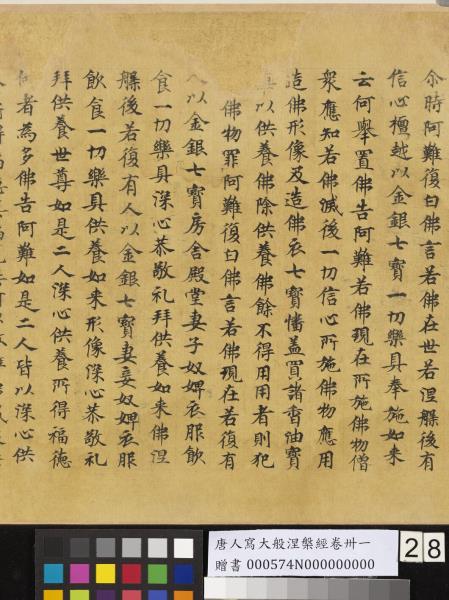 尒時阿難復白佛言若佛在世若涅槃後有
信心檀越以金銀七寶一切樂具奉施如來
云何舉置佛告阿難若佛現在所施佛物僧
衆應知若佛滅後一切信心所施佛物應用
造佛形像及造佛衣七寶憣蓋買諸香油寶
以供養佛除供養佛餘不得用用者則犯
佛物罪阿難復白佛言若佛現在若復有
人以金銀七寶房舍殿堂妻子奴婢衣服飲
食一切樂具深心恭敬礼拜供養如來佛涅
槃後若復有人以金銀七寶妻妾奴婢衣服
飲食一切樂具供養如來形像深心恭敬礼
拜供養世尊如是二人深心供養所得福德
何者為多佛告阿難如是二人皆以深心供
唐人寫大般涅槃經卷卅一
贈書 000574N000000000
28